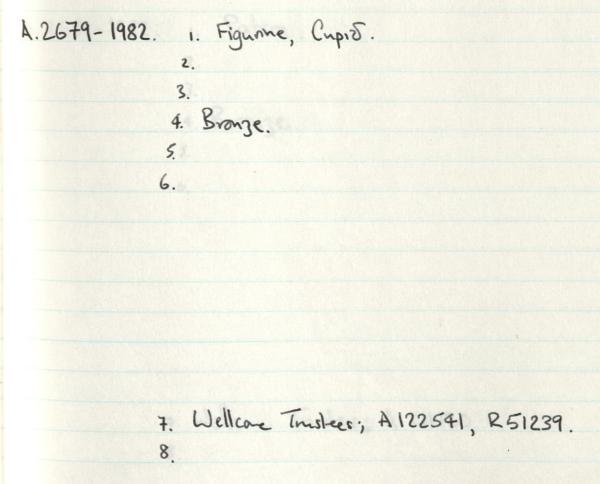 A.2679-1982. 1. Figurine, Cupid.
2.
3.
4. Bronze.
5.
6.
7. Wellcome Trustees; A122541, R51239.
8.